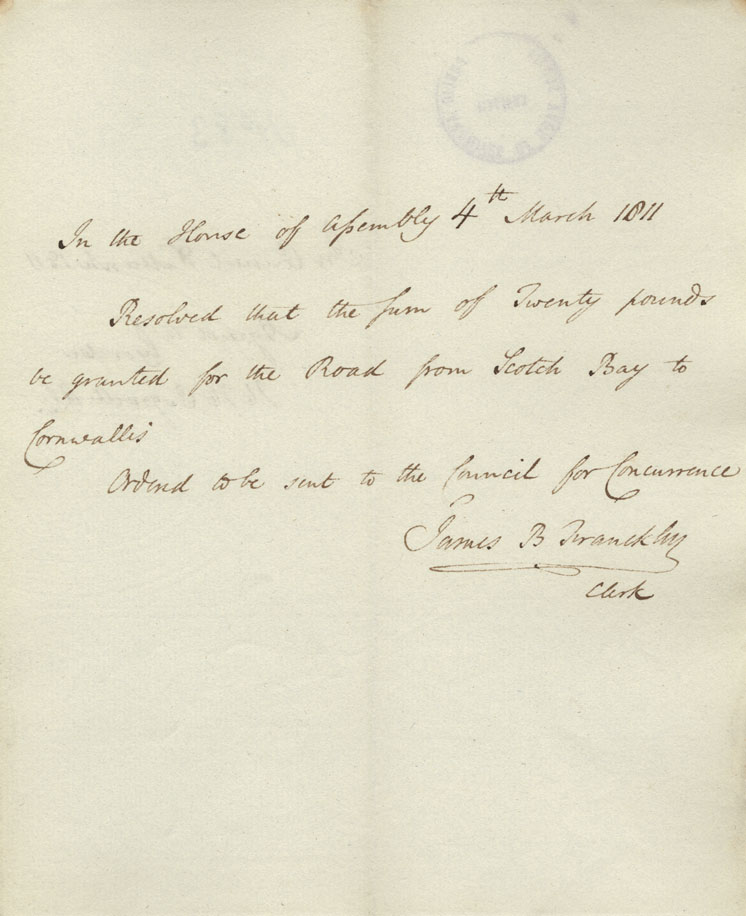 In the House of Assembly 4th March 1811
Resolved that the sum of Twenty pounds
be granted for the Road from Scotch Bay to
Cornwallis
Ordered to be sent to the Council for Concurrence
James B Francklin
Clerk